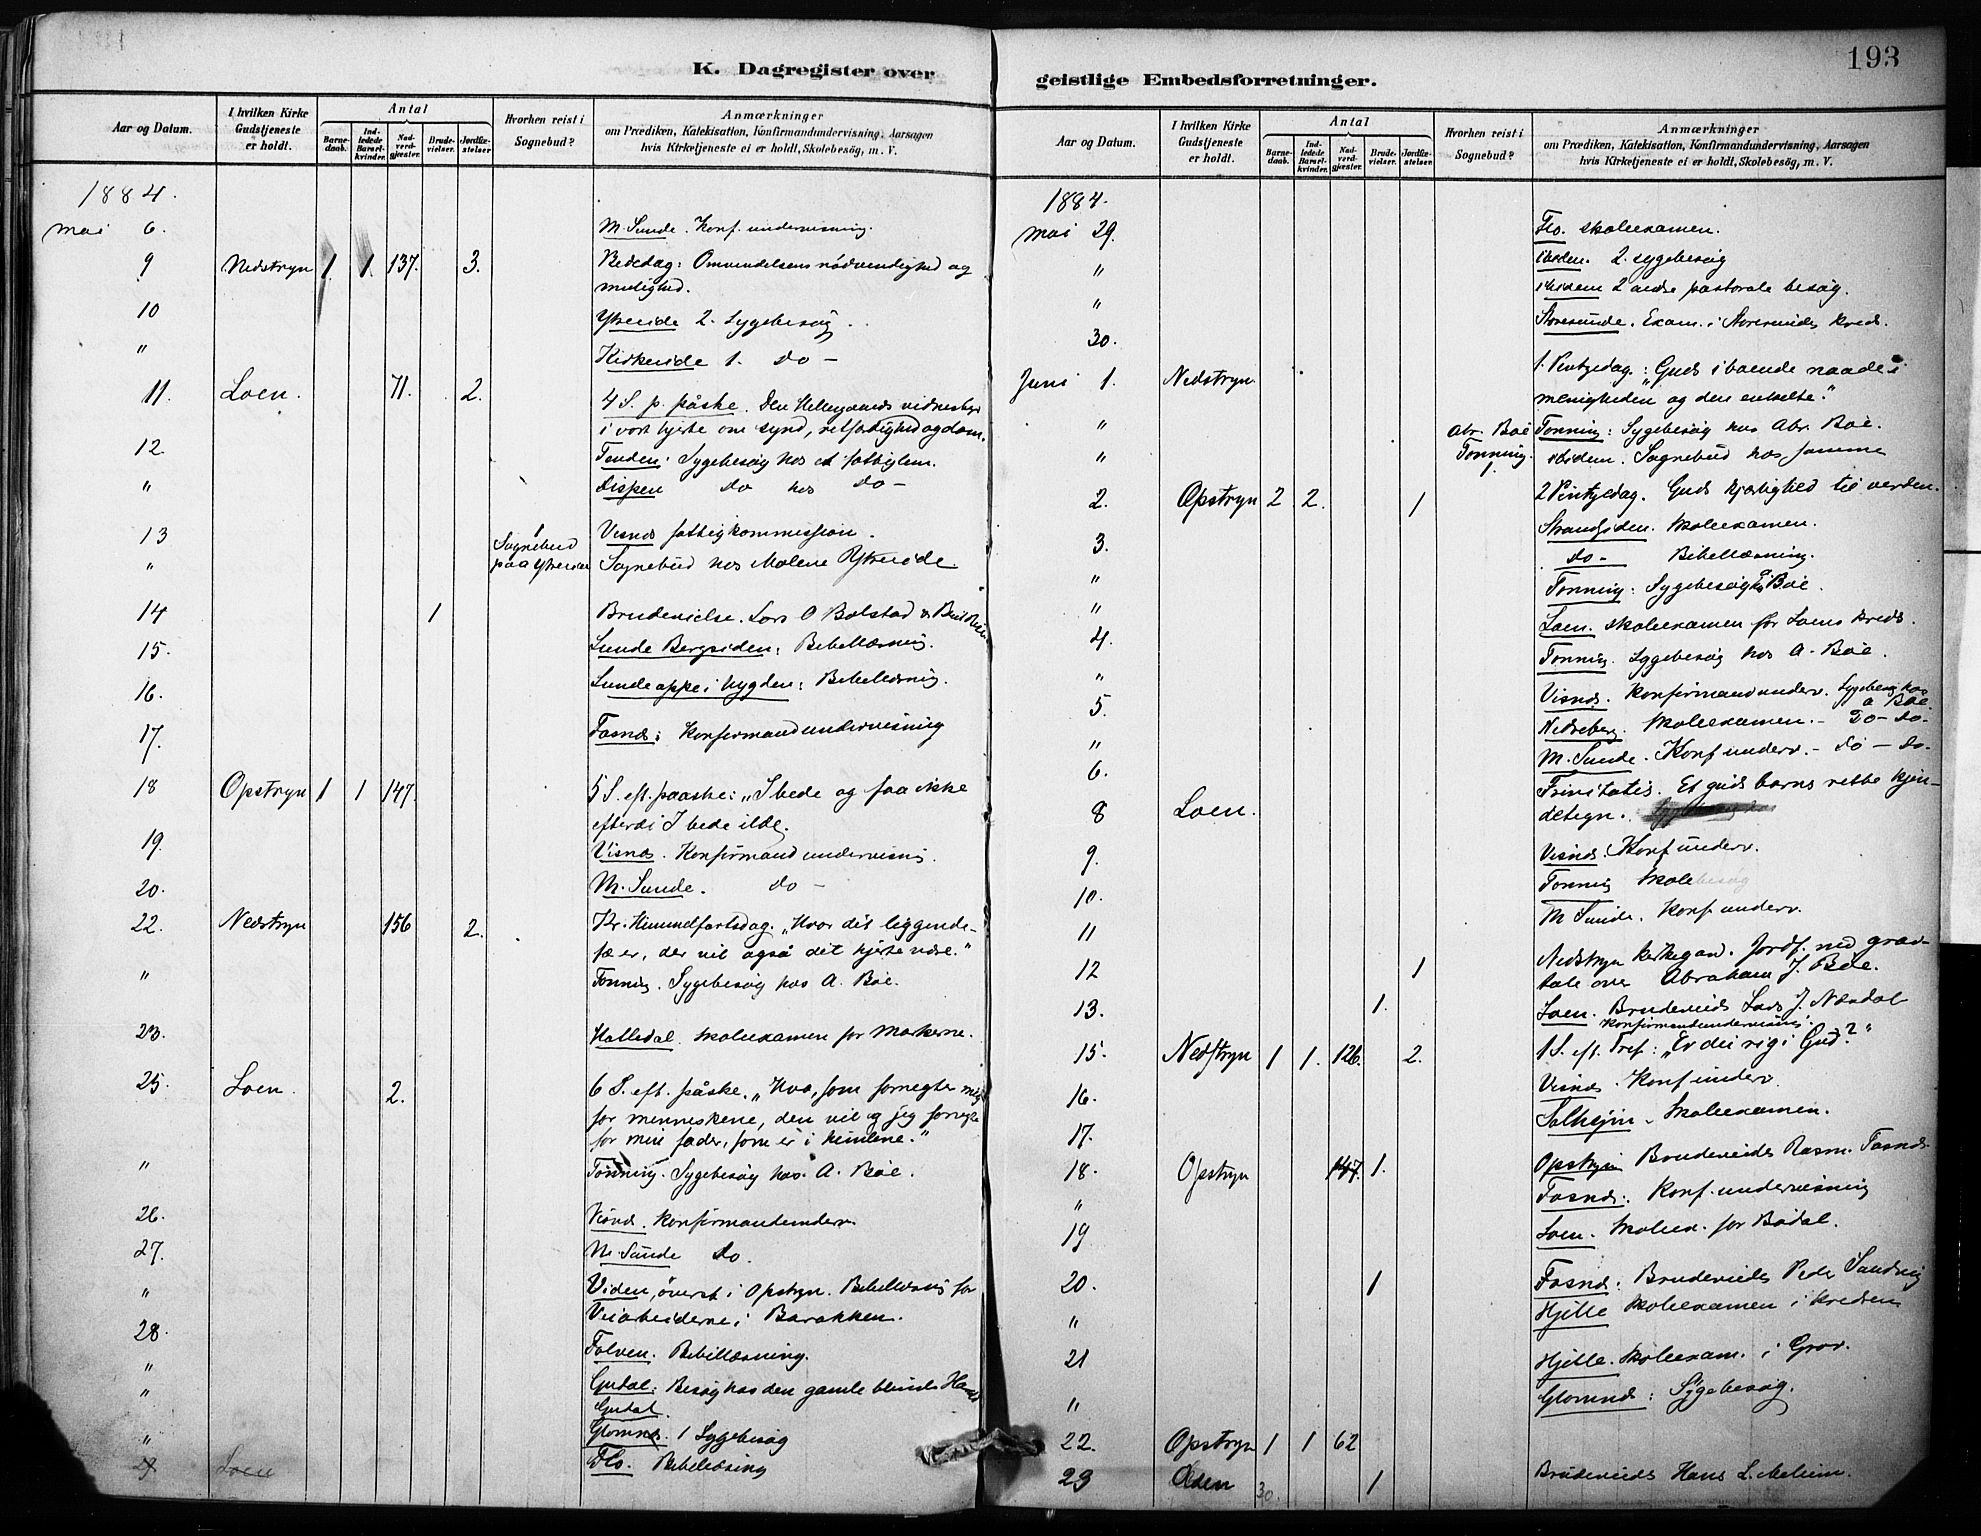 K. Dagregister over
Aar og Datum.
I hvilken Kirke Gudstjeneste er holdt.
Antal
Barne-daab.
Ind-ledede Barsel-kvinder.
Nad-verd-gjæster.
Brude-vielser.
Jordfæ-stelser
Hvorhen reist i Sognebud?
Anmærkninger
om Prædiken, Katekisation, Konfirmandundervisning, Aarsagen
hvis Kirketjeneste ei er holdt, Skolebesög, m. V.
1884.
Mai 6. M. Sunde. Konf. undervisning.
9 Nedstryn 1 1. 137. 3. Bededag: Omvendelsens nödvendighed og
mulighed.
10 Ytreeide 2. Sygebesög.
" Kirkeeide 1. do –
11. Loen. 71. 2. 4 S. p. påske. Den Helligaands vidnesbyr
i vort hjerte om synd, retfærdighed og dom.
12. Tenden: Sygebesög hos et fattiglem.
" Dispen do hos do –
13 Visnes fattigkommission.
" 1 Sognebud paa Ytreeide Sognebud hos Malene Ytreeide.
14 1 Brudevielse. Lars O Bolstad &
15. Sunde Bergsiden: Bibellæsning.
16. Sunde oppe i bygden: Bibellæsning.
17. Fosnæs: Konfirmandundervisning
18 Opstryn 1 1 147. 5 S. eft. paaske: „I bede og faa ikke
efterdi I bede ilde.
19. Visnæs. Konfirmandundervisnig.
20. M. Sunde. do –
22. Nedstryn 156 2. Kr. Himmelfartsdag. „Hvor dit liggende-
fæ er, der vil også dit hjerte være."
" Tonning. Sygebesög hos A. Böe.
23. Halledal. Skoleexamen for Markerne.
25. Loen. 2. 6 S. eft. påske. „Hvo, som fornegter mig
for menneskene, den vil og jeg fornegte
for min fader, som er i himlene."
" Tonning. Sygebesög hos A. Böe.
26. Visnæs. Konfirmandunderv.
27. M. Sunde do.
" Viden, överst i Opstryn. Bibellæsnig for
Veiarbeiderne i Barakken.
28. Folven. Bibellæsning.
" Gudal: Besög hos den gamle blinde Hans
" Gudal.
" Glomnæs. 1 Sygebesög
29 Loen Flo. Bibellæsning
193
geistlige Embedsforretninger.
Aar og Datum.
I hvilken Kirke Gudstjeneste er holdt.
Antal
Barne-daab.
Ind-ledede Barsel-kvinder.
Nad-verd-gjæster.
Brude-vielser.
Jordfæ-stelser.
Hvorhen reist i Sognebud?
Anmærkninger
om Prædiken, Katekisation, Konfirmandundervisning, Aarsagen
hvis Kirketjeneste ei er holdt, Skolebesög, m. V.
1884.
Mai 29. Flo. skoleexamen.
" ibidem. 2. sygebesög
" ibidem 2 andre pastorale besög.
30. Storesunde. Exam. i Storesundes kreds.
Juni 1. Nedstryn 1. Pintsedag: „Guds iboende naade i
menigheden og den enkelte."
" Abr. Böe Tonning: Sygebesög hos Abr. Böe.
" Tonning. 1 ibidem. Sognebud hos samme
2. Opstryn 2 2. 1 2 Pintsedag. Guds kjærlighed til verden.
3. Strandsiden. Skoleexamen.
" do – Bibellæsning.
" Tonning: Sygebesög Böe.
4. Loen. Skoleexamen for Loens kreds.
" Tonning. Sygebesög hos A. Böe.
5. Visnæs. Konfirmandunderv. Sygebesög hos
A Böe.
" Nedreberg. Skoleexamen. – do – do.
6. M. Sunde. Konf underv. – do – do.
8 Loen. Trinitatis. Et guds barns rette kjen-
detegn.
9. Visnæs. Konf underv.
10. Tonning Skolebesög
11 M Sunde. Konf underv.
12 1 Nedstryn kirkegard. Jordf. med grav-
tale over Abraham J. Böe.
13. 1. Loen. Brudevids Lars J. Næsdal
Konfirmandundervisnig.
15. Nedstryn 1 1. 126. 2. 1 S. eft. Tref: „Er du rig i Gud?"
16. Visnæs. Konf underv.
17. Solheim. Skoleexamen.
18. Opstryn 147. 1. Opstryn Brudevids Rasm. Fosnæs
" Fosnæs: Konf. undervisning
19 Loen. Skolex. for Bödal.
20. 1 Fosnæs: Brudevids Peder Sandvig
" Hjelle Skoleexamen i kredsen
21 Hjelle. Skoleexam. i Grov.
" Glomnæs: Sygebesög.
22. Opstryn 1 1 62
23 Olden 30. 1 Brudevids Hans L. Melheim.